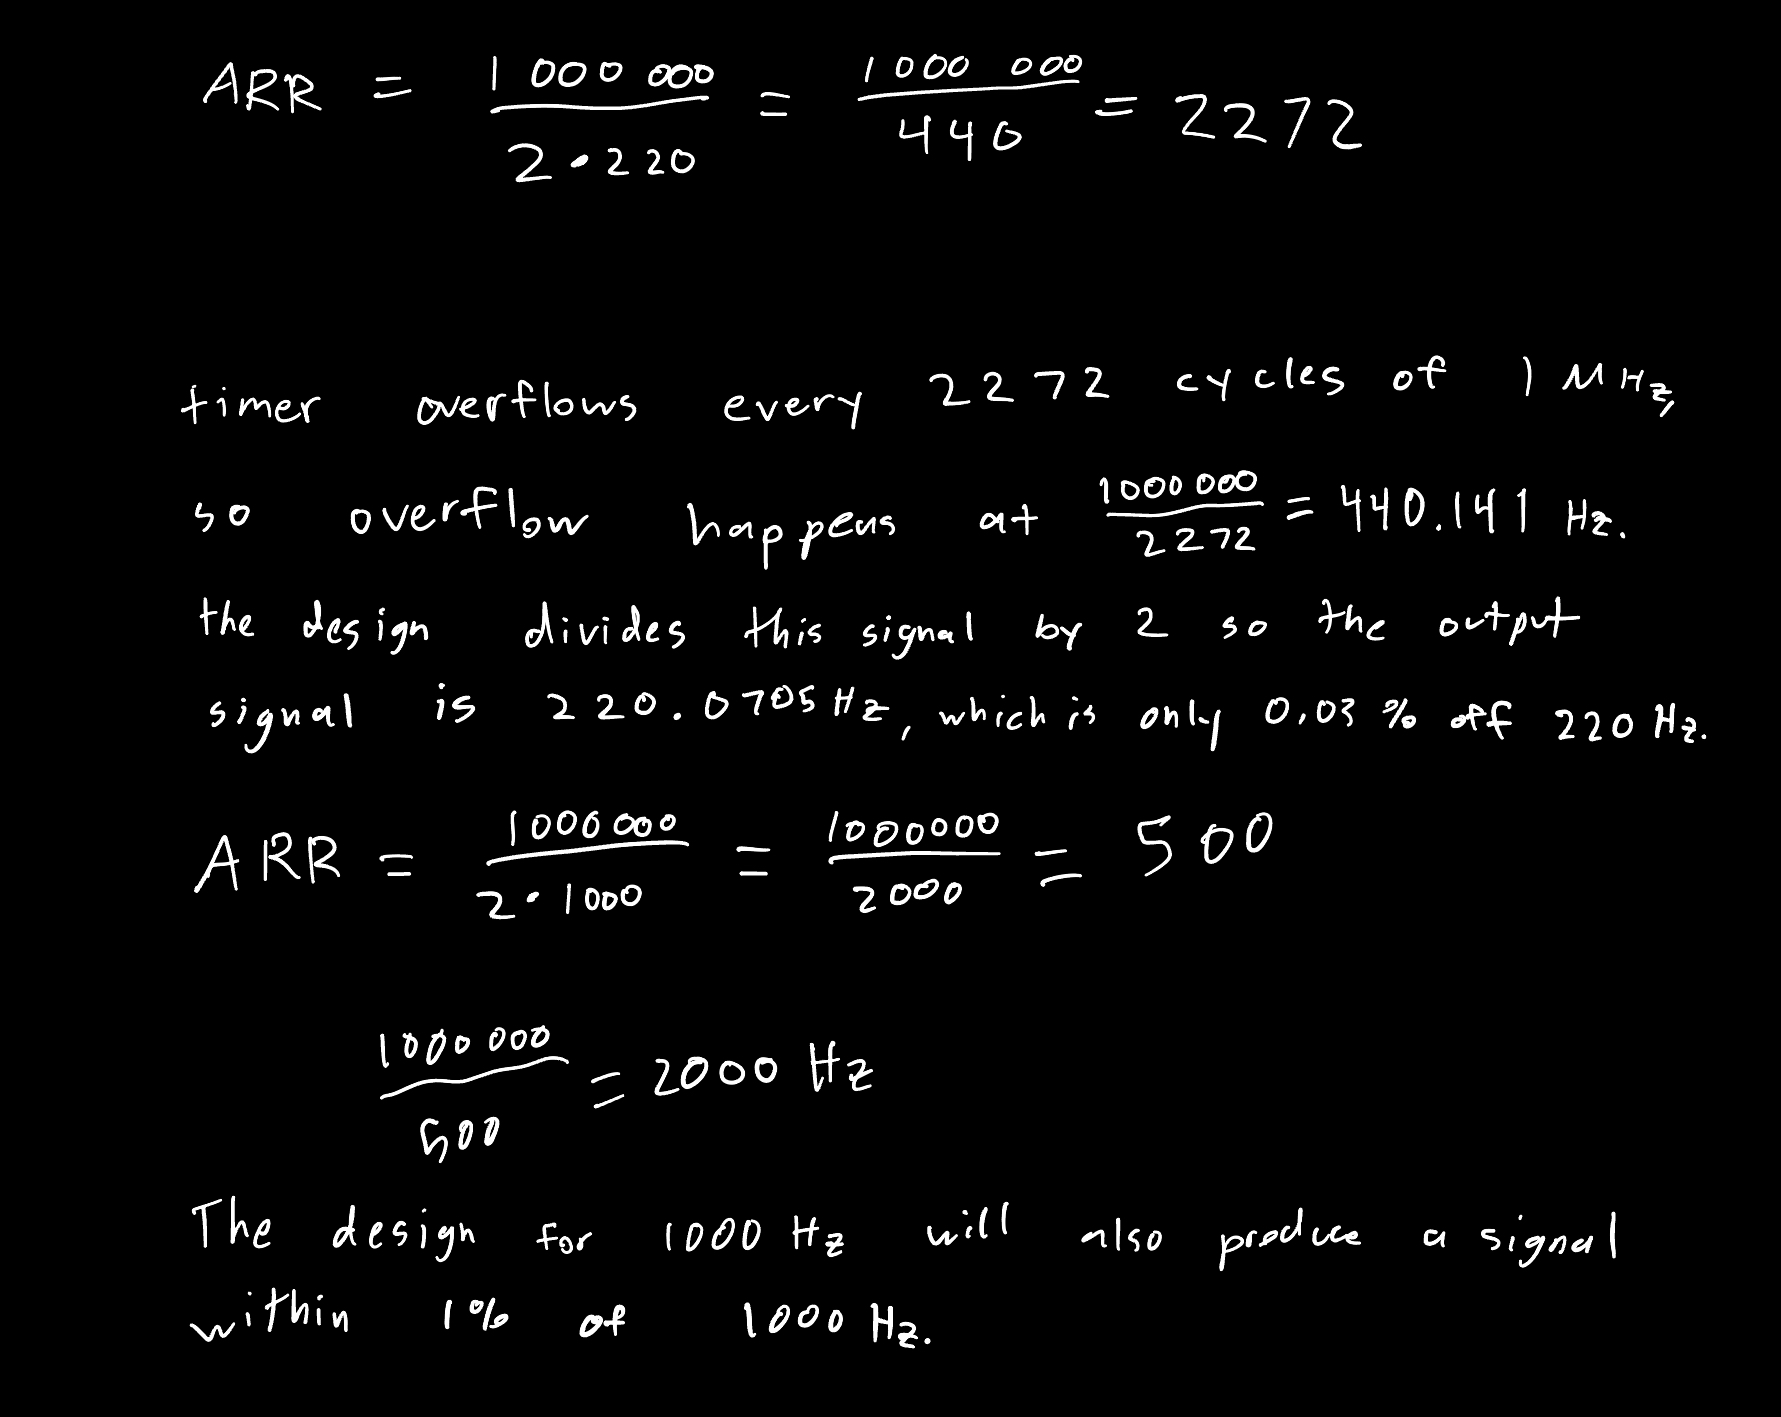 ARR = 1 000 000 / 2 • 220 = 1 000 000 / 440 = 2272
timer overflows every 2272 cycles of 1 MHz,
so overflow happens at 1000 000 / 2272 = 440.141 Hz.
the design divides this signal by 2 so the output
signal is 220.0705 Hz, which is only 0.03 % off 220 Hz.
ARR = 1000 000 / 2 • 1000 = 1000000 / 2000 = 500
1000 000 / 500 = 2000 Hz
The design for 1000 Hz will also produce a signal
within 1% of 1000 Hz.